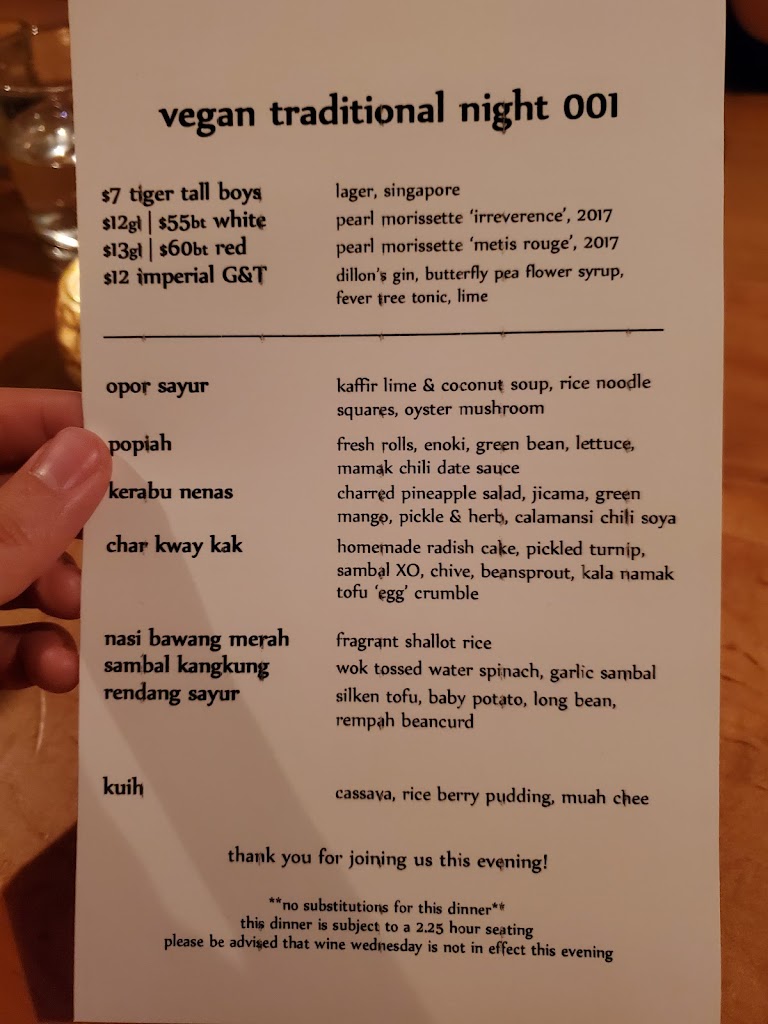 vegan traditional night 001
$7 tiger tall boys lager, singapore
$12gl | $55bt white pearl morissette 'irreverence', 2017
$13gl | $60bt red pearl morissette 'metis rouge', 2017
$12 imperial G&T dillon's gin, butterfly pea flower syrup,
fever tree tonic, lime
opor sayur kaffir lime & coconut soup, rice noodle
squares, oyster mushroom
popiah fresh rolls, enoki, green bean, lettuce,
mamak chili date sauce
kerabu nenas charred pineapple salad, jicama, green
mango, pickle & herb, calamansi chili soya
char kway kak homemade radish cake, pickled turnip,
sambal XO, chive, beansprout, kala namak
tofu 'egg' crumble
nasi bawang merah fragrant shallot rice
sambal kangkung wok tossed water spinach, garlic sambal
rendang sayur silken tofu, baby potato, long bean,
rempah beancurd
kuih cassava, rice berry pudding, muah chee
thank you for joining us this evening!
**no substitutions for this dinner**
this dinner is subject to a 2.25 hour seating
please be advised that wine wednesday is not in effect this evening